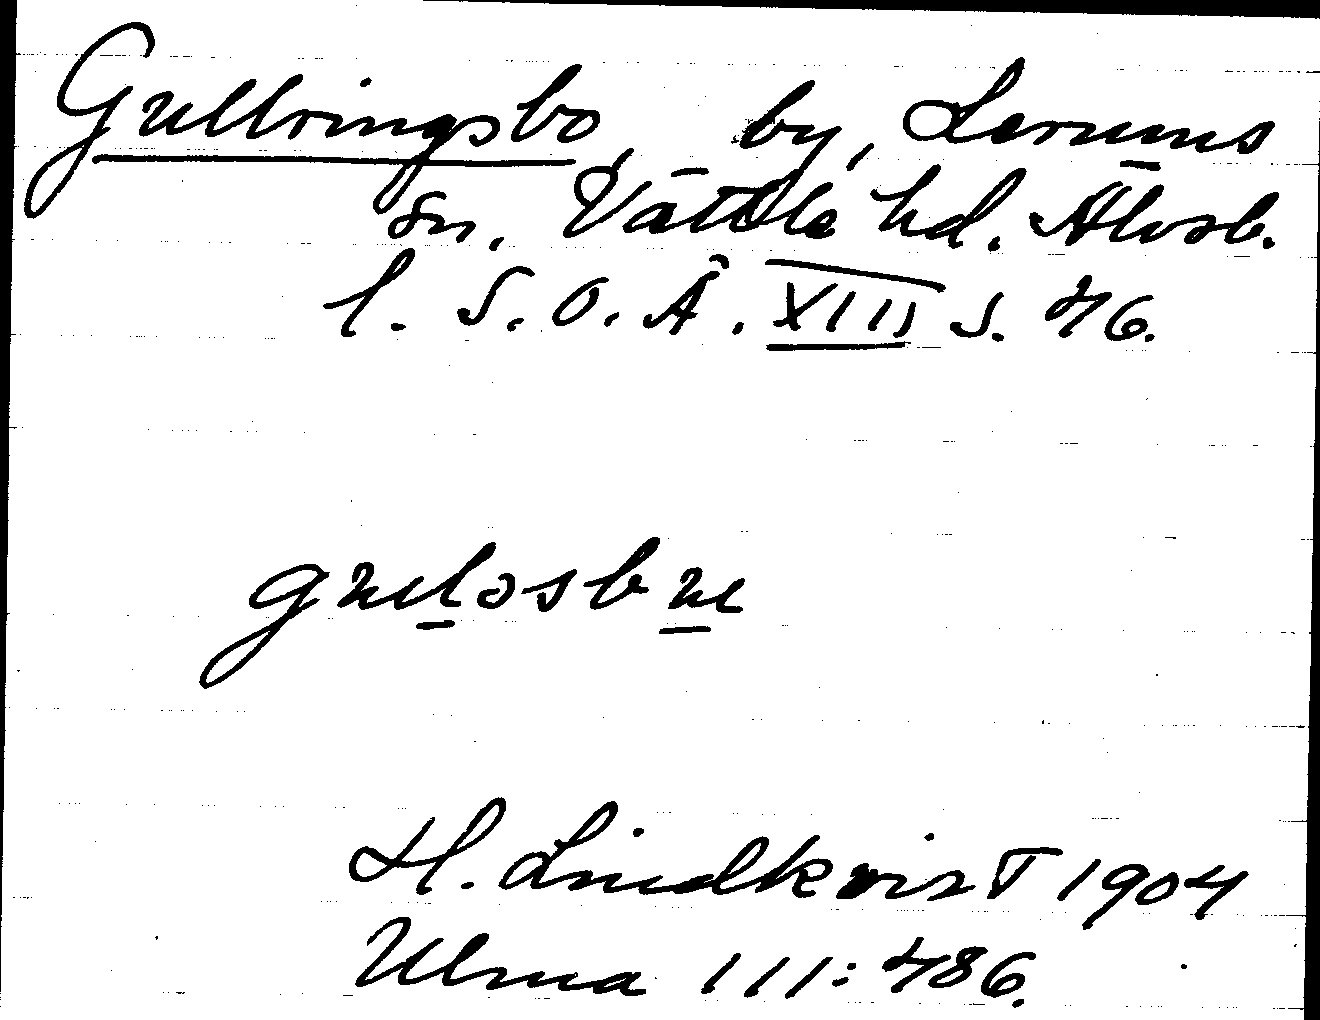 Gullringsbo, by, Lerums
sn. Vättle hd. Älvsb.
l. S.O.Ä. XIII S. 46.
gulosbu
H. Lindkvist 1904
Ulma 111:486.